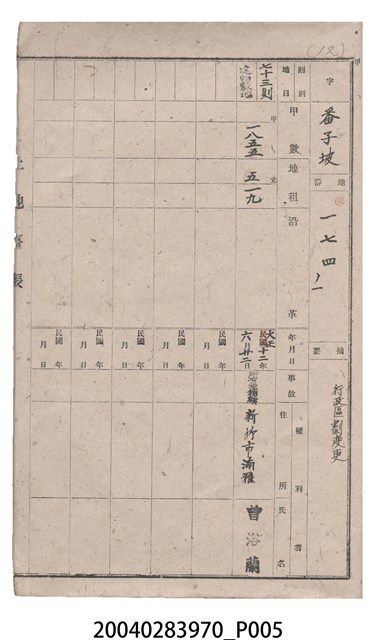 (12)
字 番子坡
地番 一七四ノ一
摘要 行政區劃變更
則別 七十三則
地目 建物敷地
甲數 甲 一八五五
地租 元 五一九
沿革
年月日 大正 民國 十二年 六月廿二日
事故
權利者
住所 新竹市湳雅
氏名 曾浴蘭
民國 年 月 日
民國 年 月 日
民國 年 月 日
民國 年 月 日
民國 年 月 日
土地臺帳
20040283970_P005